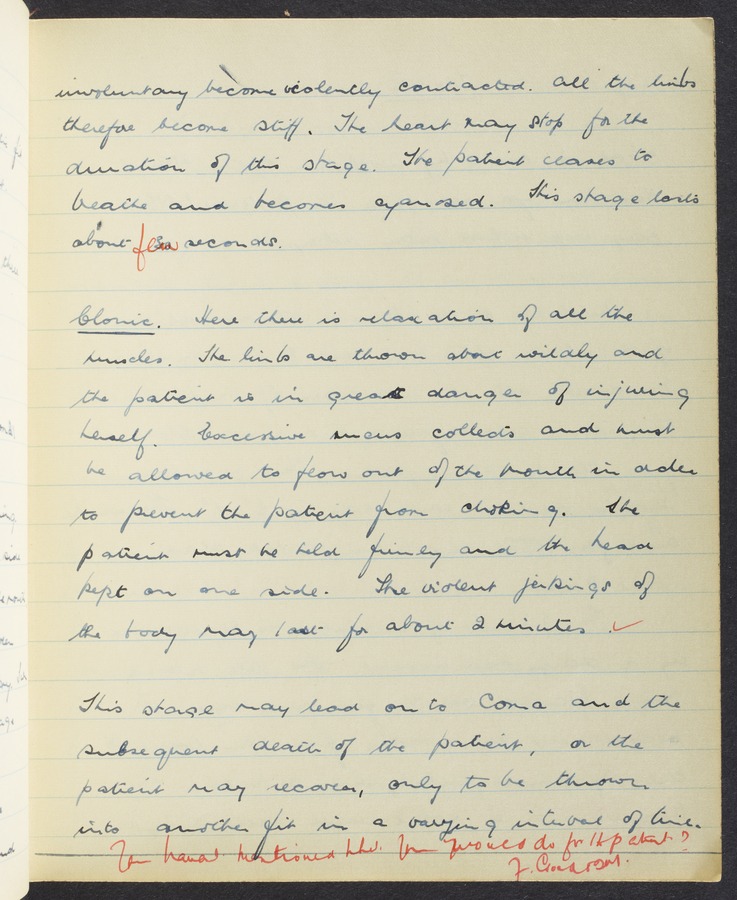 involuntary become violently contracted. All the limbs
therefore become stiff. The heart may stop for the
duration of this stage. The patient ceases to
breathe and becomes cyanosed. This stage lasts
about few seconds.
Clonic. Here there is relaxation of all the
muscles. The limbs are thrown about wildly and
the patient is in great danger of injuring
herself. Excessive mucus collects and must
be allowed to flow out of the mouth in order
to prevent the patient from choking. The
patient must be held firmly and the head
kept on one side. The violent jerkings of
the body may last for about 2 minutes.
This stage may lead on to Coma and the
subsequent death of the patient, or the
patient may recover, only to be thrown
into another fit in a varying interval of time.
You havent mentioned what you would do for the patient?